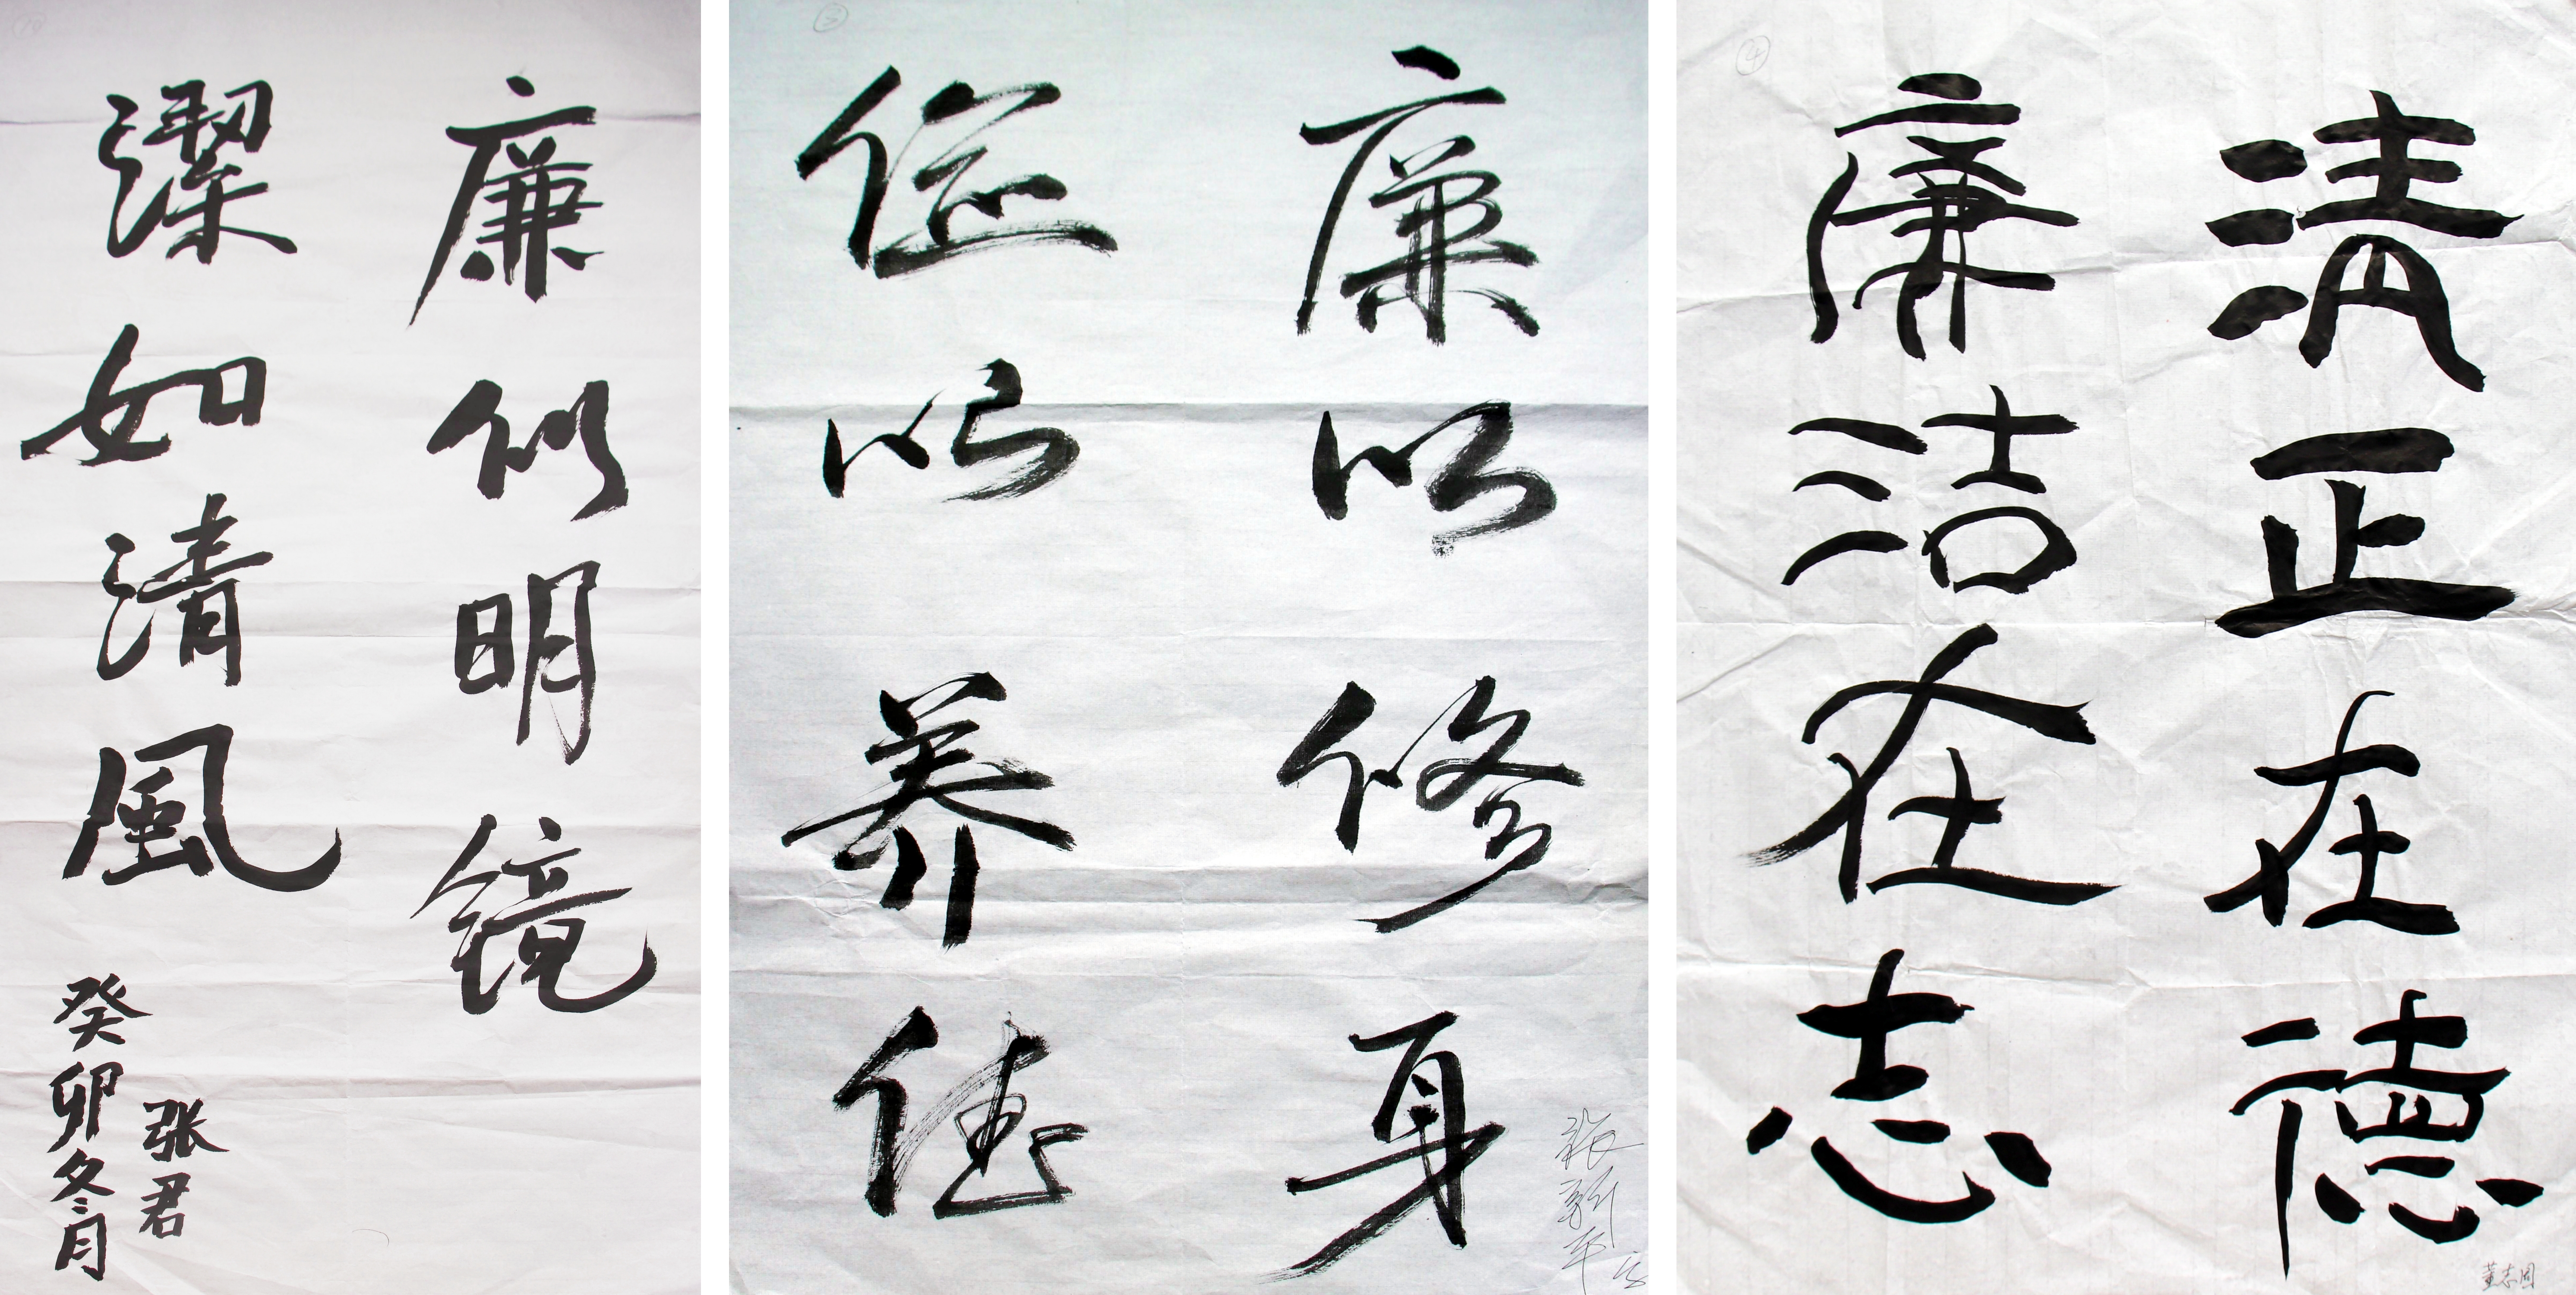 廉似明镜
潔如清風
癸卯冬月
张君
⑤
廉以修身
俭以养德
④
清正在德
廉洁在志
董志国